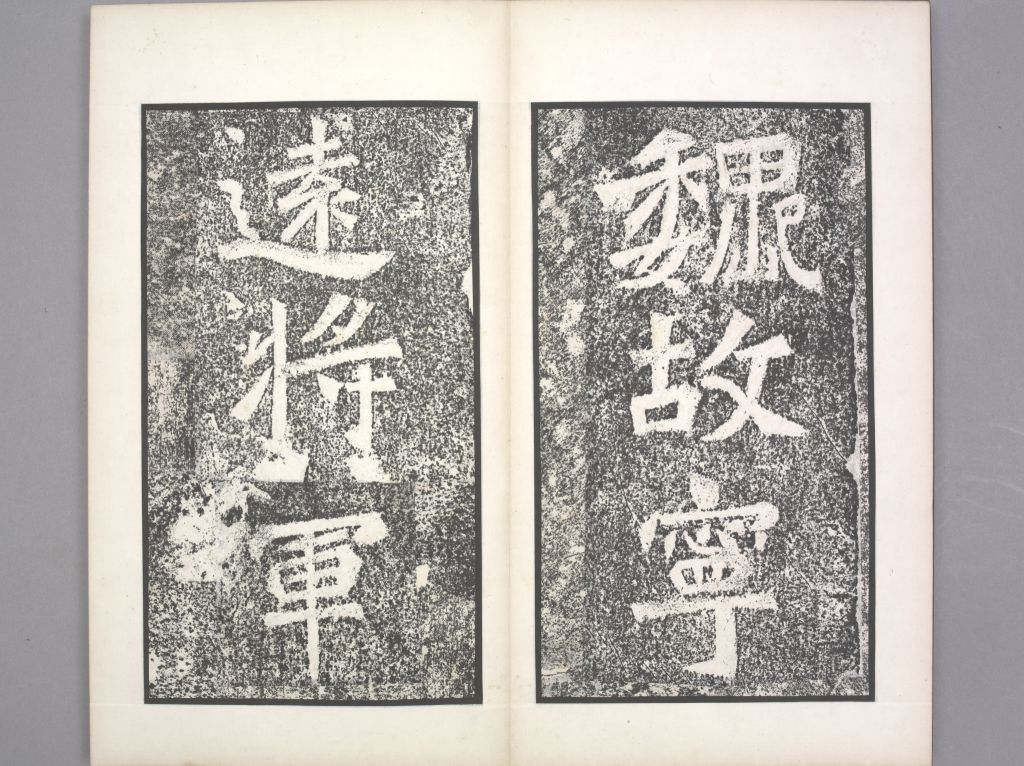 魏故寧
遠將軍